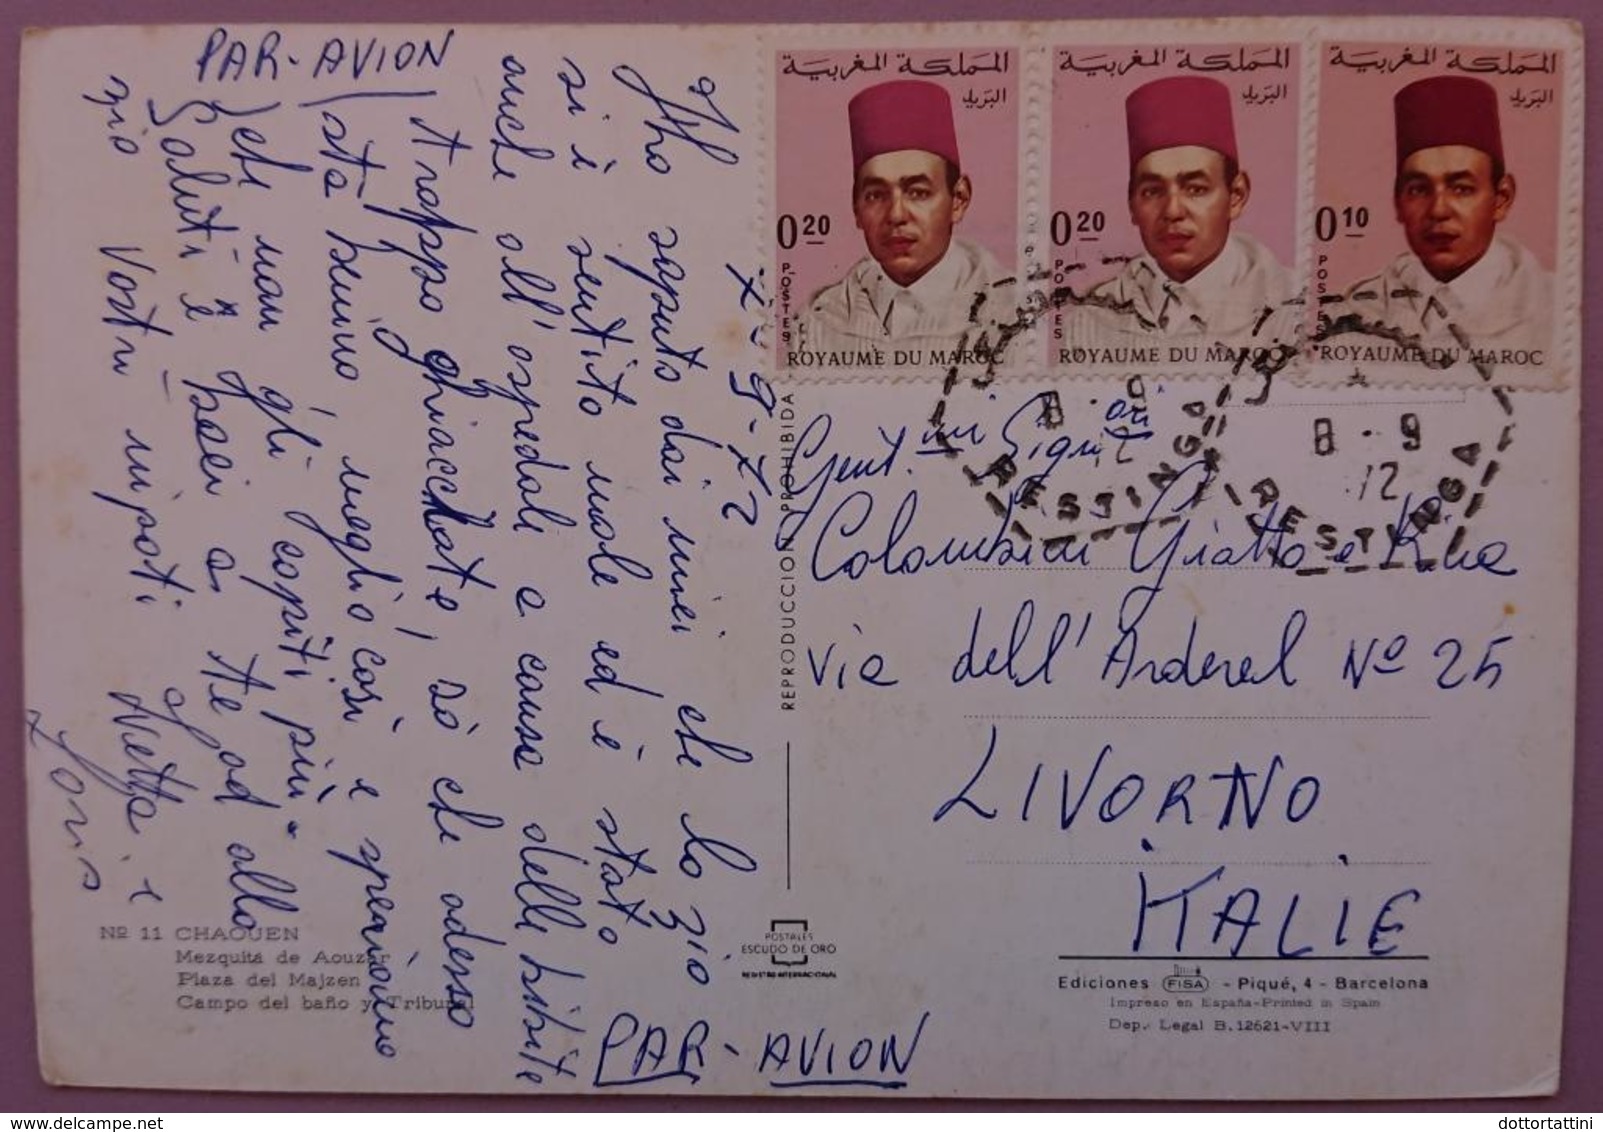 المملكة المغربية
البريد
0.20
POSTES
ROYAUME DU MAROC
المملكة المغربية
البريد
0.20
POSTES
ROYAUME DU MAROC
المملكة المغربية
البريد
0.10
POSTES
ROYAUME DU MAROC
8 - 9
RESTINGA
8 - 9
RESTINGA
PAR-AVION
7-9-72
Ho saputo dai miei che lo zio
si è sentito male ed è stato
anche all'ospedale a causa delle bibite
troppo ghiacciate, so che adesso
sta benino, meglio così e speriamo
che non gli capiti più
Saluti e baci a te ad allo
zio Vostri nipoti Netta e
Loris
Gent.mi Sign.ori
Colombini
Via dell'Ardenza Nº 25
LIVORNO
ITALIE
PAR-AVION
REPRODUCCION PROHIBIDA
POSTALES
ESCUDO DE ORO
REGISTRO INTERNACIONAL
Nº 11 CHAOUEN
Mezquita de Aouzar
Plaza del Majzen
Campo del baño y Tribunal
Ediciones FISA - Piqué, 4 - Barcelona
Impreso en España-Printed in Spain
Dep. Legal B. 12621-VIII
dottortattini